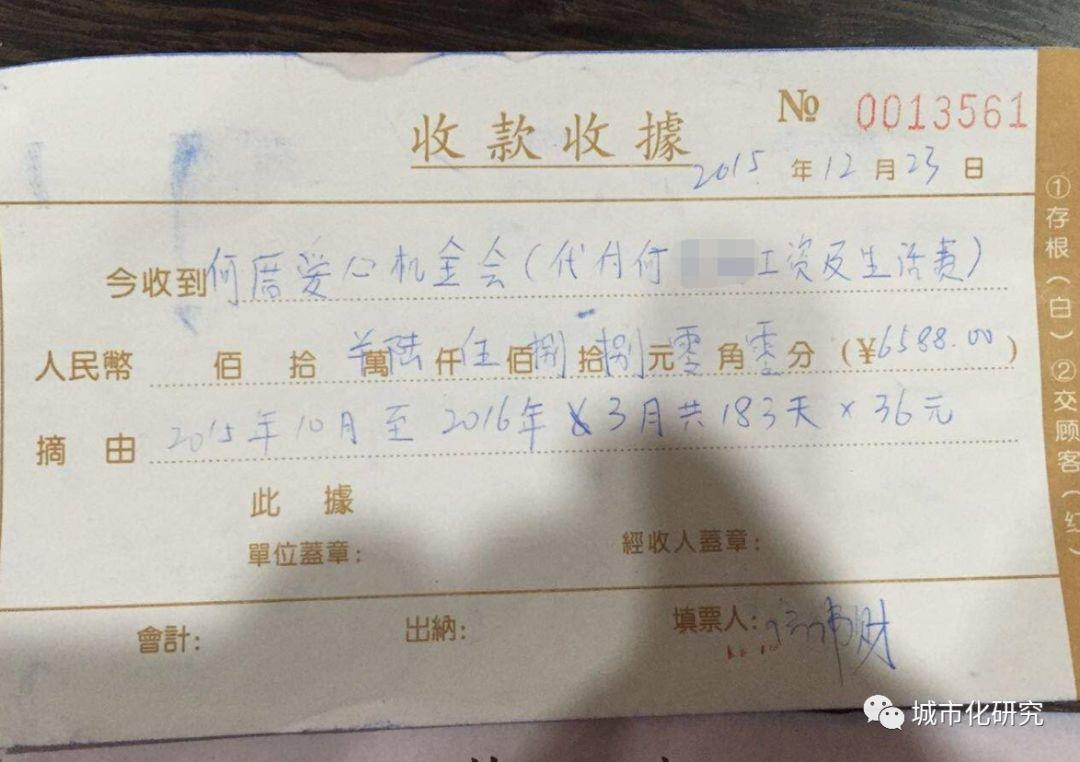 收款收據
№ 0013561
2015 年 12 月 23 日
今收到何厝爱心机金会(代付何 工资及生活费)
人民幣 佰 拾 萬陆仟伍佰捌拾捌元零角零分(¥6588.00)
摘由 2015年10月至2016年3月共183天×36元
此據
單位蓋章: 經收人蓋章:
會計: 出納: 填票人: 财
①存根(白)②交顾客(红)
城市化研究